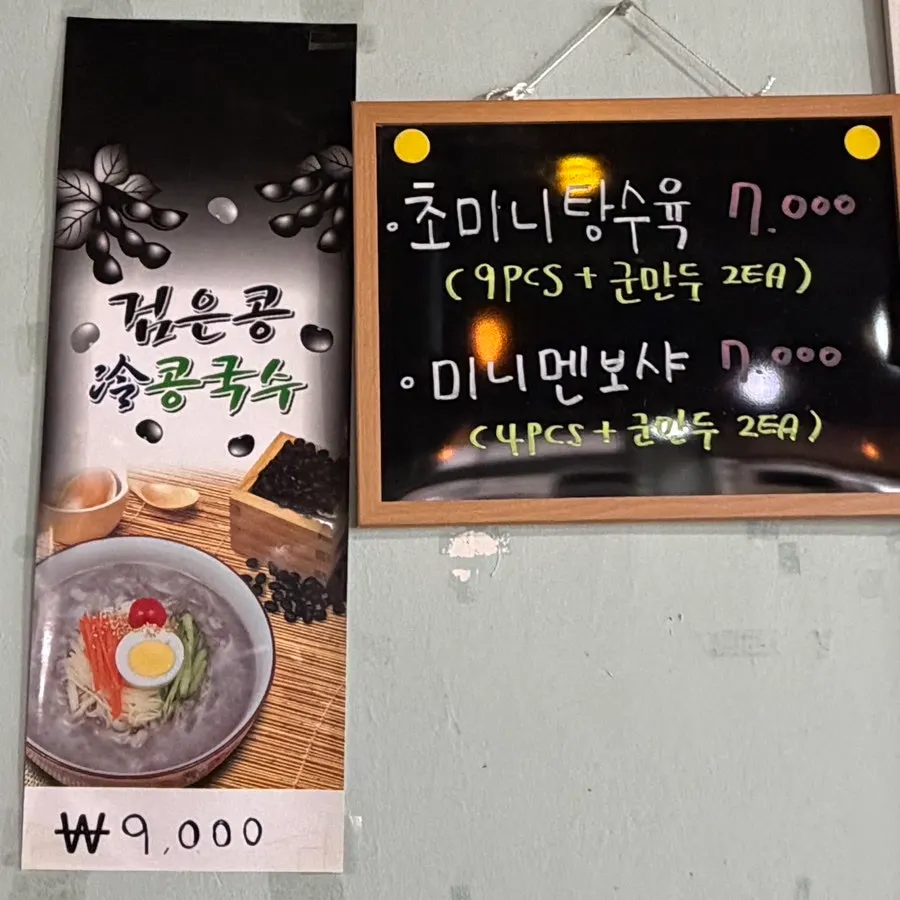 검은콩
冷콩국수
₩9,000
·초미니탕수육 7.000
(9PCS + 군만두 2EA)
·미니멘보샤 7.000
(4PCS + 군만두 2EA)